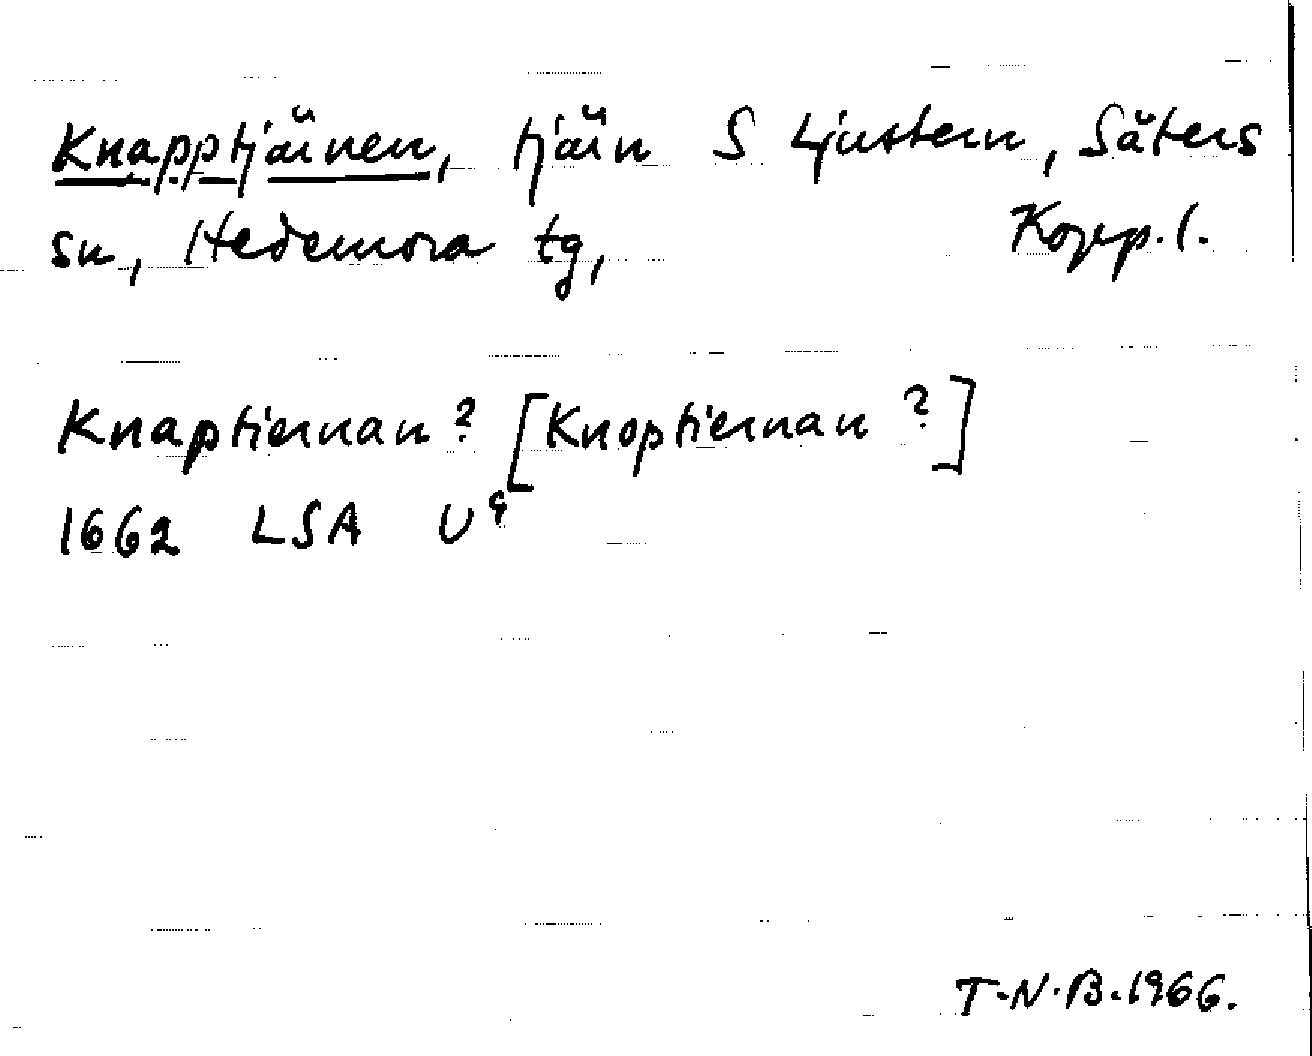 Knapptjärnen, tjärn S Ljustern, Säters
sn, Hedemora tg, Kopp.l.
Knaptiernan? [Knoptiernan?]
1662 LSA U9
T.N.B.1966.